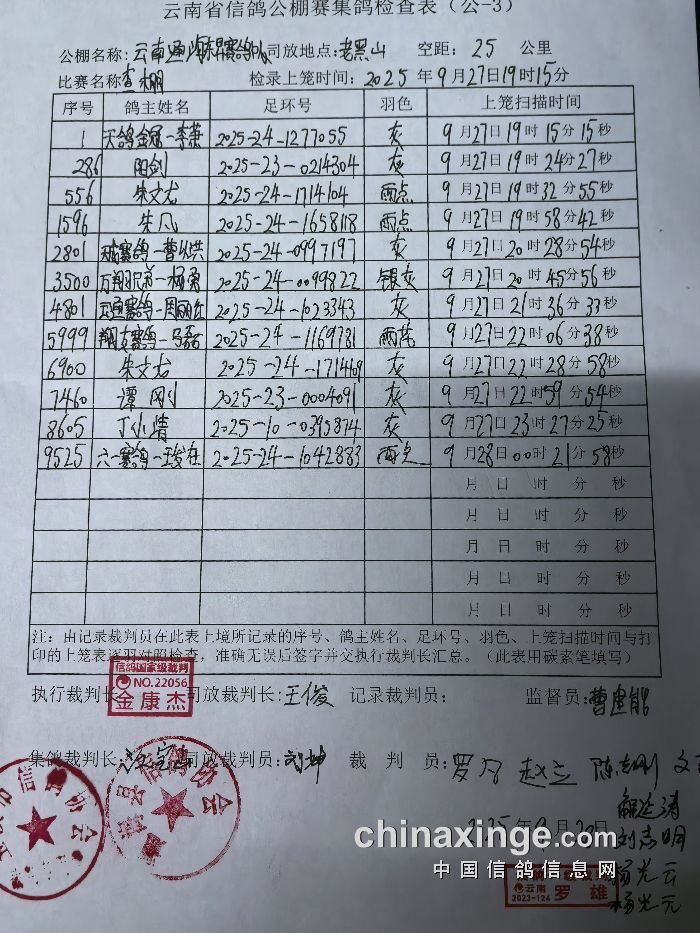 云南省信鸽公棚赛集鸽检查表（公-3）
公棚名称：云南通海 赛鸽 司放地点：老黑山 空距：25 公里
比赛名称 查棚 检录上笼时间：2025 年 9 月 27 日 19 时 15 分
序号 鸽主姓名 足环号 羽色 上笼扫描时间
1 天鸽金冠-李萧 2025-24-1277055 灰 9 月 27 日 19 时 15 分 15 秒
286 阳剑 2025-23-0214304 灰 9 月 27 日 19 时 24 分 27 秒
556 朱文龙 2025-24-1714104 雨点 9 月 27 日 19 时 32 分 55 秒
1596 朱凡 2025-24-1658118 雨点 9 月 27 日 19 时 58 分 42 秒
2801 赛鸽-曹 洪 2025-24-0997197 灰 9 月 27 日 20 时 28 分 54 秒
3500 万翔 -杨勇 2025-24-0099822 银灰 9 月 27 日 20 时 45 分 56 秒
4801 赛鸽-周丽红 2025-24-1023343 灰 9 月 27 日 21 时 36 分 33 秒
5999 翔友赛鸽-马磊 2025-24-1169781 雨花 9 月 27 日 22 时 06 分 38 秒
6900 朱文龙 2025-24-1714109 灰 9 月 27 日 22 时 28 分 58 秒
7460 谭刚 2025-23-0004091 灰 9 月 27 日 22 时 59 分 54 秒
8605 丁小靖 2025-10-0395874 灰 9 月 27 日 23 时 27 分 25 秒
9525 六一赛鸽-王 2025-24-1042883 雨点 9 月 28 日 00 时 21 分 58 秒
月 日 时 分 秒
月 日 时 分 秒
月 日 时 分 秒
月 日 时 分 秒
月 日 时 分 秒
注：由记录裁判员在此表上填所记录的序号、鸽主姓名、足环号、羽色、上笼扫描时间与打
印的上笼表逐羽对照检查，准确无误后签字并交执行裁判长汇总。（此表用碳素笔填写）
信鸽国家级裁判
NO.22056
金康杰
执行裁判长 司放裁判长：王俊 记录裁判员： 监督员：曹建能
集鸽裁判长： 司放裁判员：刘坤 裁判员：罗 赵立 陈志刚
市信鸽协会
县信鸽协会
2025 年 9 月
刘志明
杨光云
杨光元
云南
2023-124
罗雄
chinaxinge.com
中国信鸽信息网